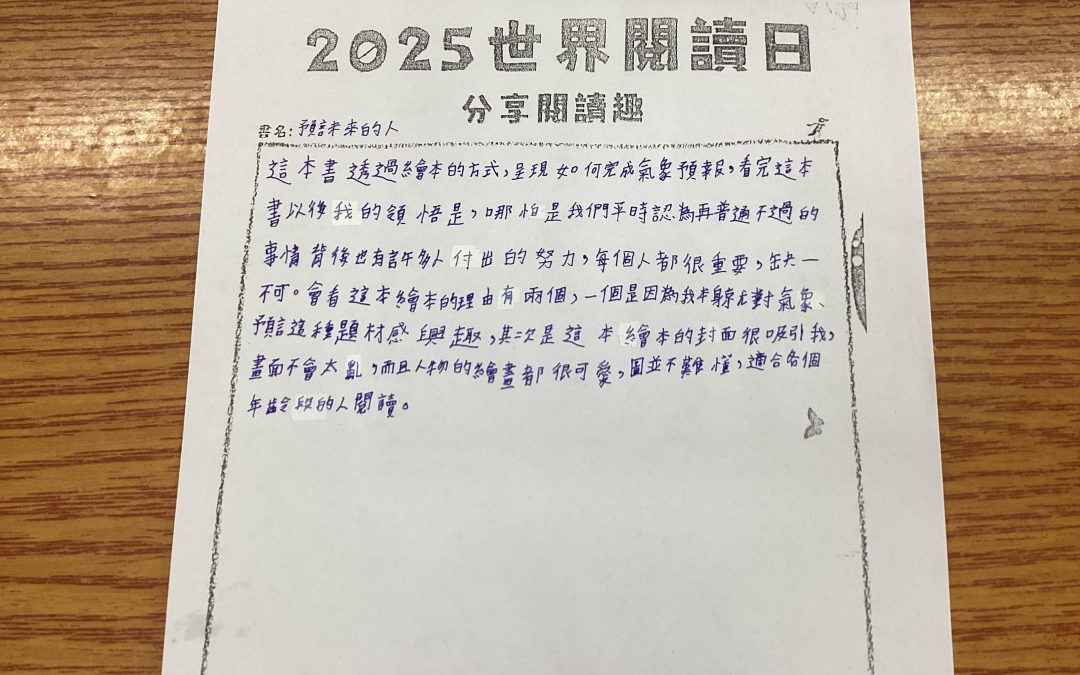 2025世界閱讀日
分享閱讀趣
書名:預言未來的人
這本書透過繪本的方式,呈現如何完成氣象預報,看完這本
書以後我的領悟是,哪怕是我們平時認為再普通不過的
事情背後也有許多人付出的努力,每個人都很重要,缺一
不可。會看這本繪本的理由有兩個,一個是因為我本身就對氣象、
預言這種題材感興趣,其次是這本繪本的封面很吸引我,
畫面不會太亂,而且人物的繪畫都很可愛,圖並不難懂,適合各個
年齡段的人閱讀。